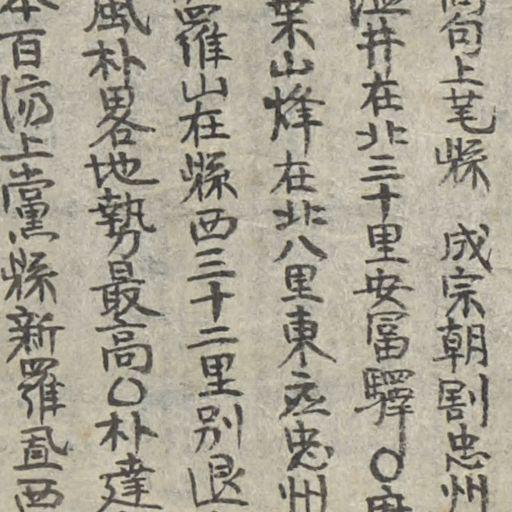 句上芼縣 成宗朝割忠州
井在北三十里安富驛○
葉山烽在北八里東应忠州
羅山在縣西三十二里别退
風朴畧地勢最高○朴達
本百済上党縣新羅置西